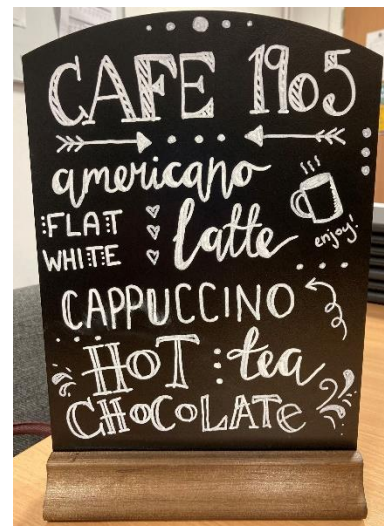 CAFE 1905
americano
FLAT
WHITE
latte
enjoy!
CAPPUCCINO
HOT : tea
CHOCOLATE